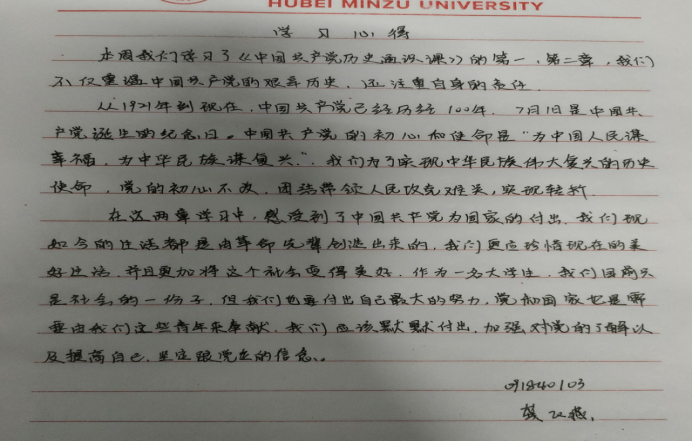 HUBEI MINZU UNIVERSITY
学习心得
本周我们学习了《中国共产党历史通识课》的第一、第二章，我们
不仅重温中国共产党的艰辛历史，还注重自身的条件。
从1921年到现在，中国共产党已经历经100年，7月1日是中国共
产党诞生的纪念日。中国共产党的初心和使命是“为中国人民谋
幸福，为中华民族谋复兴”，我们为了实现中华民族伟大复兴的历史
使命，党的初心不改，团结带领人民攻克难关，实现转折
在这两章学习中，感受到了中国共产党为国家的付出，我们现
如今的生活都是由革命先辈创造出来的，我们更应珍惜现在的美
好生活，并且更加将这个社会变得美好，作为一名大学生，我们固然只
是社会的一份子，但我们也要付出自己最大的努力，党和国家也是需
要由我们这些青年来奉献，我们应该默默付出，加强对党的了解以
及提高自己，坚定跟党走的信念。
091840103
龚